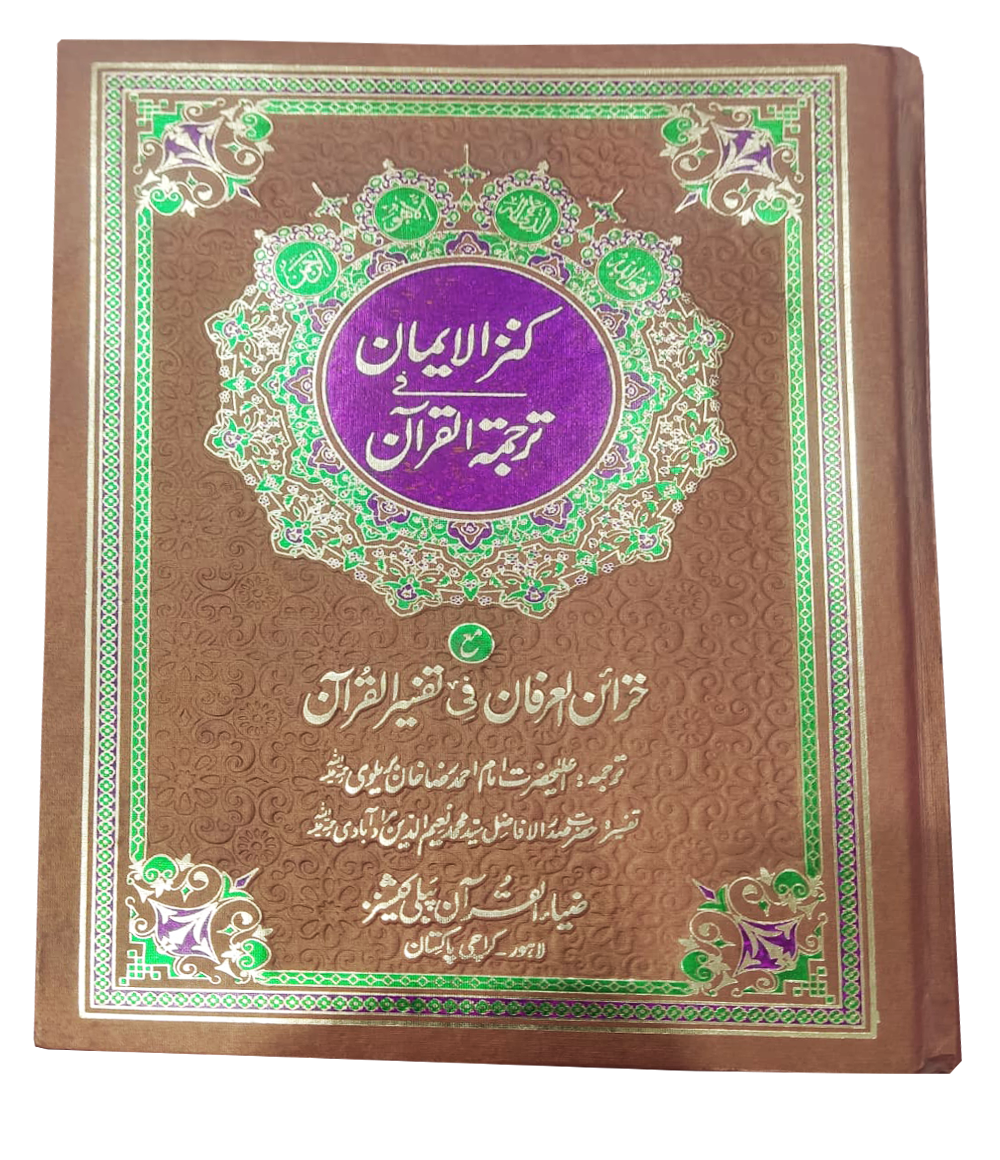 هو اللہ
الذی لا الہ
کنز الایمان
فی
ترجمۃ القرآن
مع
خزائن العرفان فی تفسیر القرآن
ترجمہ: اعلیٰحضرت امام احمد رضا خان بریلوی رحمۃ اللہ علیہ
تفسیر: حضرت صدر الافاضل سید محمد نعیم الدین مرادآبادی رحمۃ اللہ علیہ
ضیاء القرآن پبلی کیشنز
لاہور - کراچی پاکستان